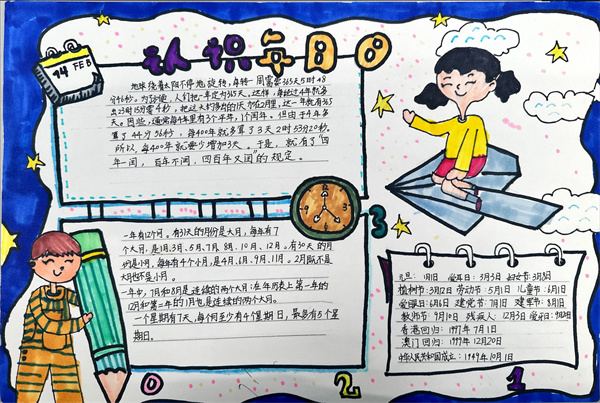 认识年月日
14 FEB
地球绕着太阳不停地旋转,每转一周需要365天5时48
分46秒。为了方便,人们把一年定为365天,这样,每过过4年就多
出23时15分零4秒,把这大约多满的1天加在2月里,这一年就有366
天。因此,通常每4年里有3个平年,1个闰年。但由于4年多
算了44分56秒,每400年就多算了3天2时53分20秒。
所以,每400年就要少增加3天。于是,就有了“四
年一闰,百年不闰,四百年又闰”的规定。
一年有12个月,有31天的月份是大月,每年有7
个大月,是1月、3月、5月、7月、8月、10月、12月。有30天的月
份是小月,每年有4个小月,是4月、6月、9月、11月。2月既不是
大月也不是小月。
一年中,7月和8月是连续的两个大月;在年历表上第一年的
12月和第二年的1月也是连续的两个大月。
一个星期有7天,每个月至少有4个星期日,最多有5个星
期日。
元旦:1月1日 爱耳日:3月3日 妇女节:3月8日
植树节:3月12日 劳动节:5月1日 儿童节:6月1日
爱眼日:6月6日 建党节:7月1日 建军节:8月1日
教师节:9月10日 残疾人:12月3日 爱牙日:9月20日
香港回归:1997年7月1日
澳门回归:1999年12月20日
中华人民共和国成立:1949年10月1日
3
0
2
1